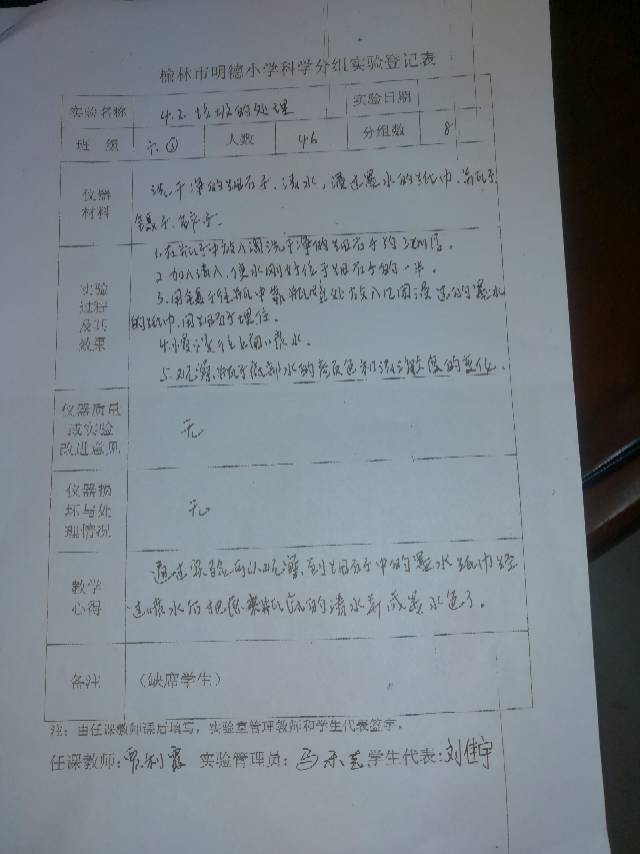 榆林市明德小学科学分组实验登记表
实验名称 4.2 垃圾的处理 实验日期
班 级 六① 人数 46 分组数 8
仪器材料
洗干净的细石子、清水、浸过墨水的纸巾、
镊子、
实验过程及其效果
1.在瓶子中放入洗干净的细石子约 厚。
2.加入清水,使水刚好位于细石子的一半。
3.用镊子往瓶中靠瓶壁处放入几团浸过的墨水
的纸巾,用细石子埋住。
4. 往上面喷水。
5.观察瓶子底部水的颜色和 的变化。
仪器质量或实验改进意见
无
仪器损坏与处理情况
无
教学心得
通过实验可以观察到细石子中的墨水纸巾经
过喷水后把原来瓶底的清水 成墨水色了。
备注 (缺席学生)
注:由任课教师课后填写,实验室管理教师和学生代表签字。
任课教师: 实验管理员: 学生代表:刘佳宇